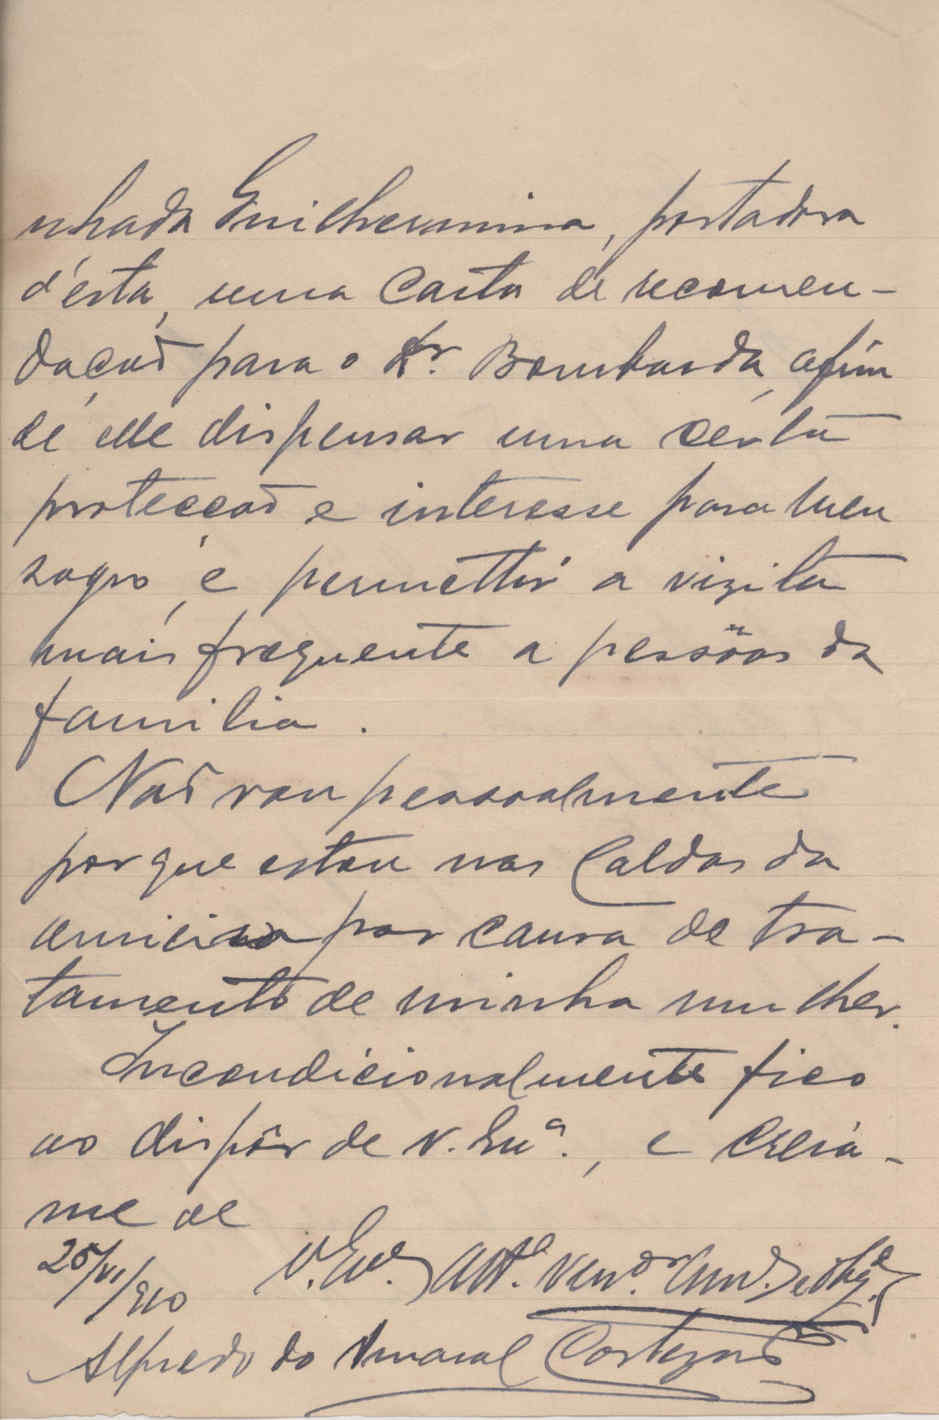 nhada Guilhermina, portadora
d'esta, uma carta de recomen-
dação para o Dr. Bombarda, afim
de elle dispensar uma certa
protecção e interesse para meu
sogro, e permettir a vizita
mais frequente a pessôas da
familia.
Não vou pessoalmente
por que estou nas Caldas da
por causa de tra-
tamento de minha mulher.
Incondicionalmente fico
ao dispôr de V. Exª., e creia-
me de
25/VI/910 V. Exª. Attº. Venº.
Alfredo do Amaral Cortezão